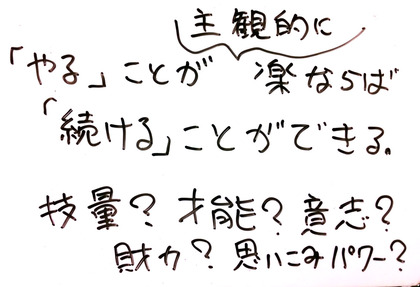 主観的に
「やる」ことが 楽ならば
「続ける」ことができる。
技量？才能？意志？
財力？思いこみパワー？